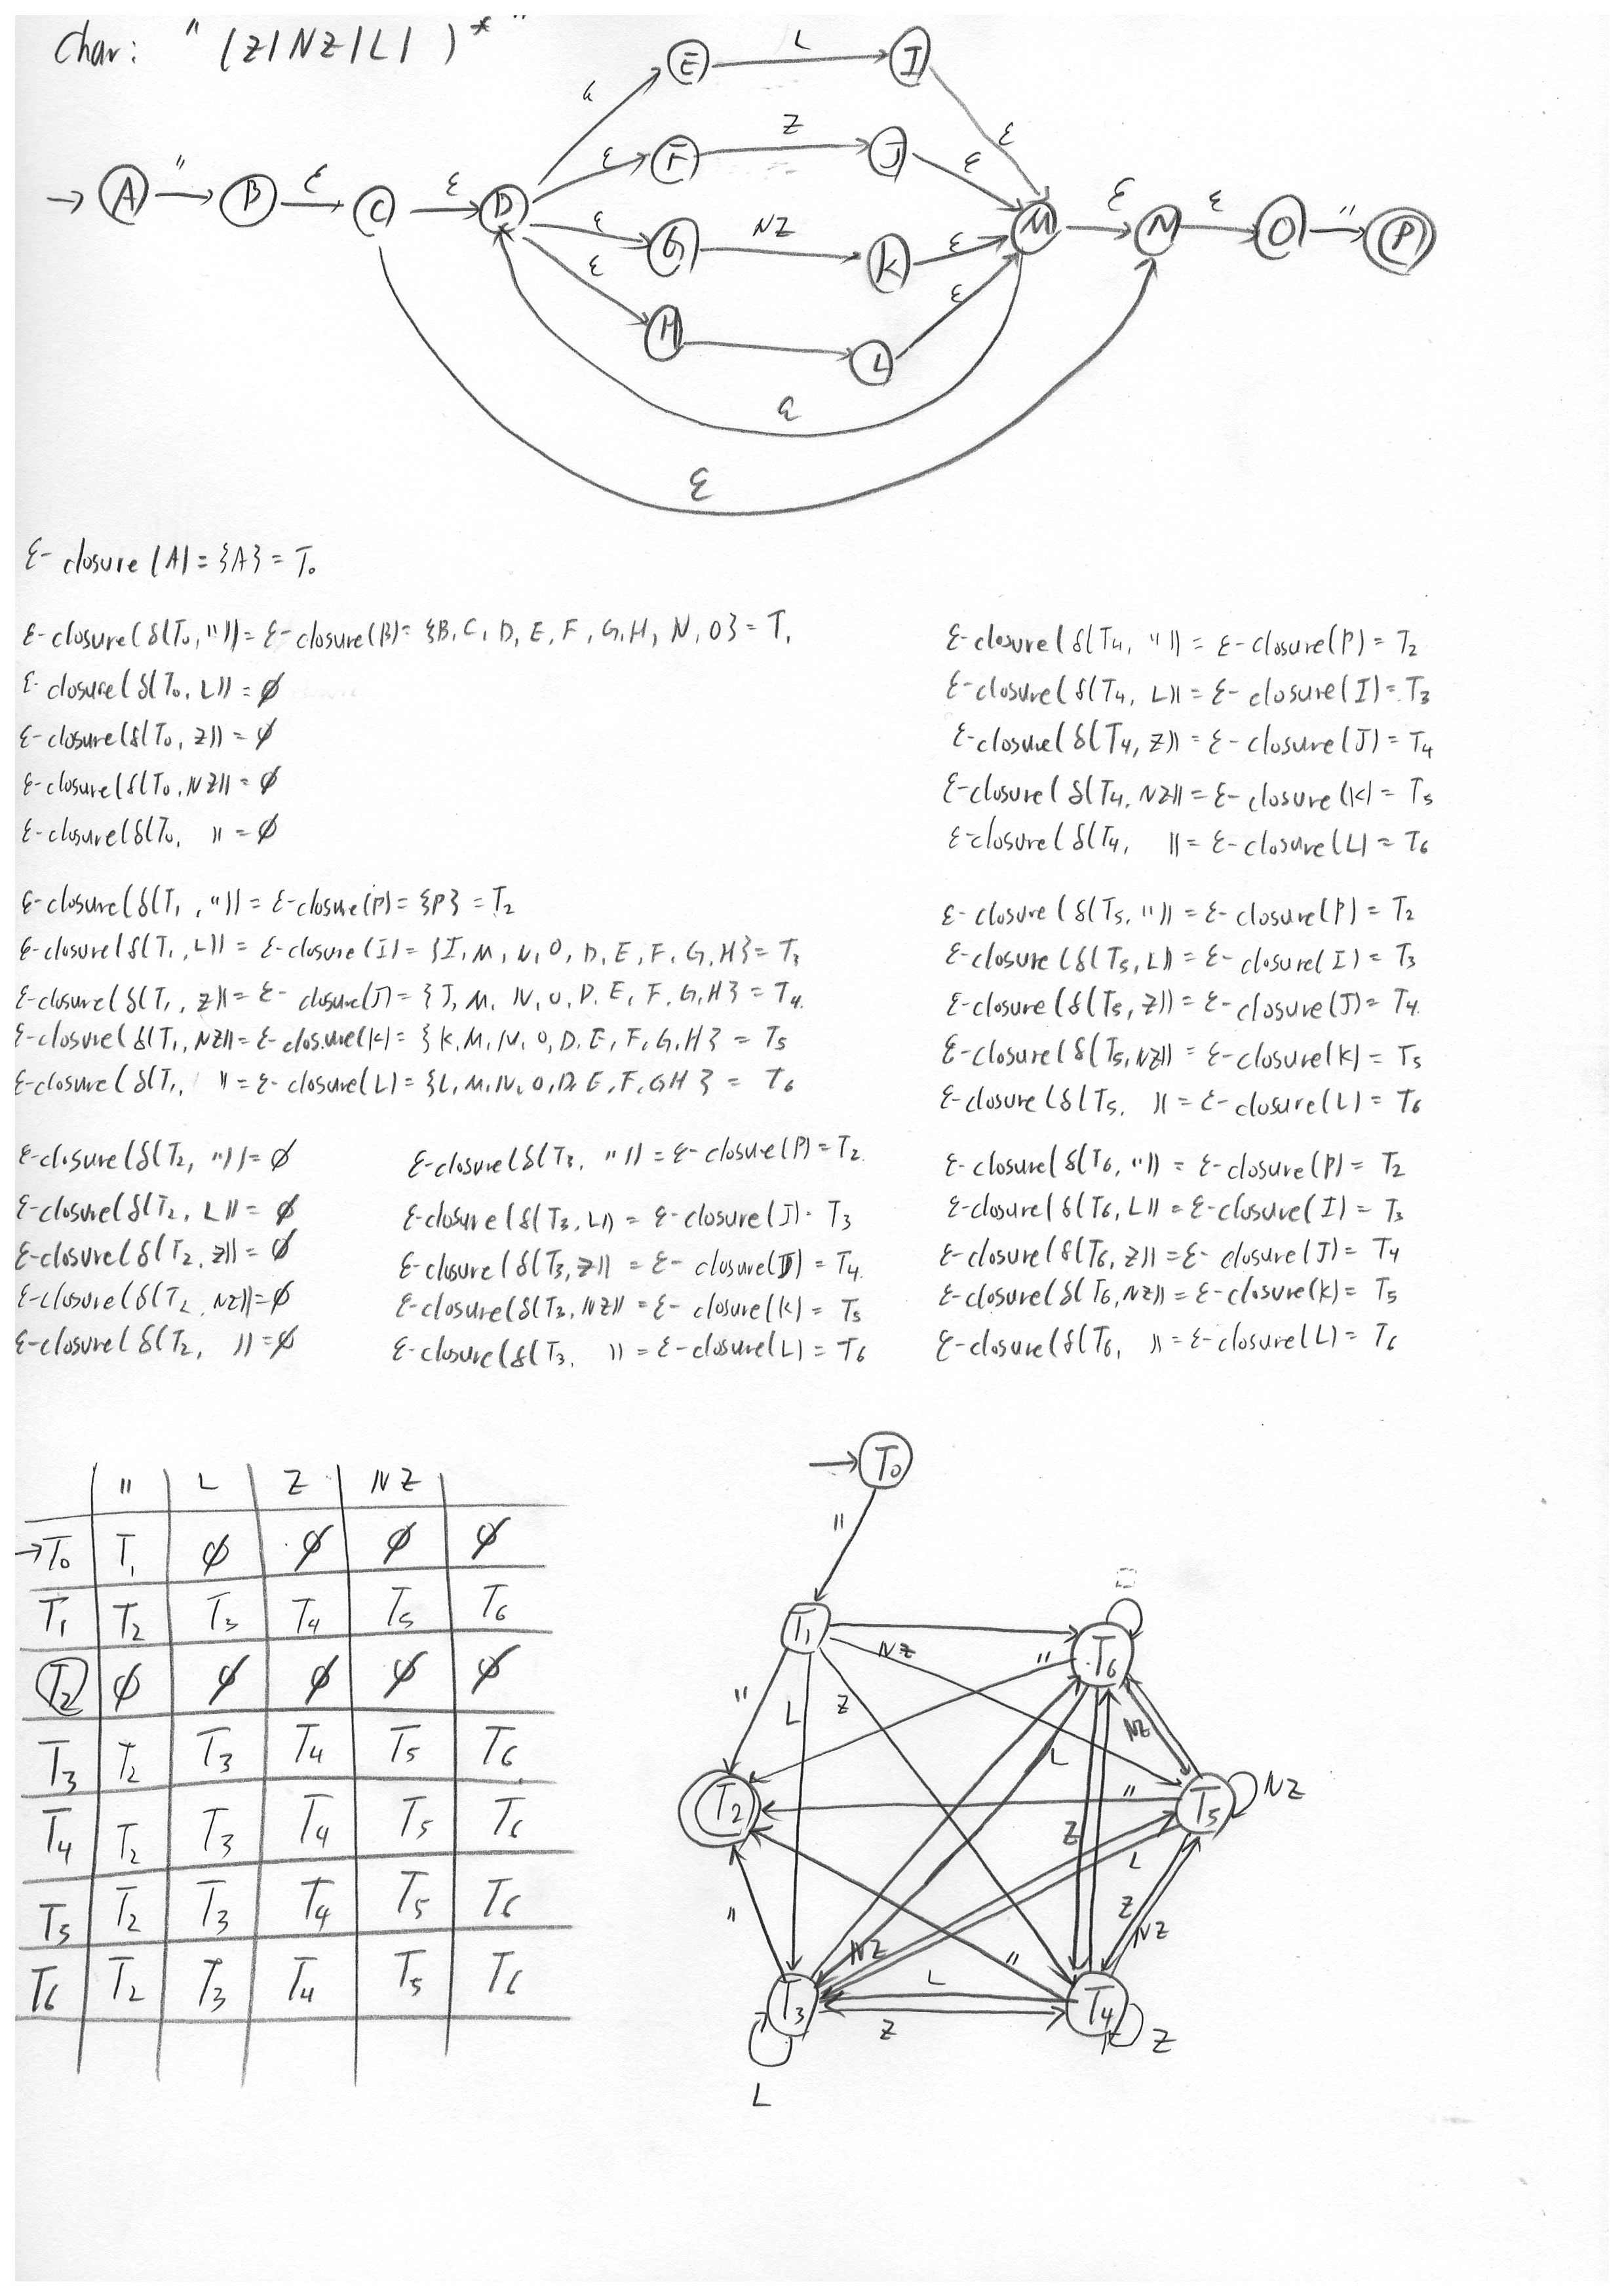 Char: " (Z|NZ|L| )* "
E L I
ε ε
F Z J
ε ε
→ A " B ε C ε D M ε N ε O " P
ε G NZ K ε
ε H L ε
ε
ε
ε-closure(A)={A}=T₀
ε-closure(δ(T₀,"))=ε-closure(B)={B,C,D,E,F,G,H,N,O}=T₁
ε-closure(δ(T₀,L))=∅
ε-closure(δ(T₀,Z))=∅
ε-closure(δ(T₀,NZ))=∅
ε-closure(δ(T₀, ))=∅
ε-closure(δ(T₁,"))=ε-closure(P)={P}=T₂
ε-closure(δ(T₁,L))=ε-closure(I)={I,M,N,O,D,E,F,G,H}=T₃
ε-closure(δ(T₁,Z))=ε-closure(J)={J,M,N,O,D,E,F,G,H}=T₄
ε-closure(δ(T₁,NZ))=ε-closure(K)={K,M,N,O,D,E,F,G,H}=T₅
ε-closure(δ(T₁, ))=ε-closure(L)={L,M,N,O,D,E,F,GH}=T₆
ε-closure(δ(T₂,"))=∅
ε-closure(δ(T₂,L))=∅
ε-closure(δ(T₂,Z))=∅
ε-closure(δ(T₂,NZ))=∅
ε-closure(δ(T₂, ))=∅
ε-closure(δ(T₃,"))=ε-closure(P)=T₂
ε-closure(δ(T₃,L))=ε-closure(J)=T₃
ε-closure(δ(T₃,Z))=ε-closure(J)=T₄
ε-closure(δ(T₃,NZ))=ε-closure(K)=T₅
ε-closure(δ(T₃, ))=ε-closure(L)=T₆
ε-closure(δ(T₄,"))=ε-closure(P)=T₂
ε-closure(δ(T₄,L))=ε-closure(I)=T₃
ε-closure(δ(T₄,Z))=ε-closure(J)=T₄
ε-closure(δ(T₄,NZ))=ε-closure(K)=T₅
ε-closure(δ(T₄, ))=ε-closure(L)=T₆
ε-closure(δ(T₅,"))=ε-closure(P)=T₂
ε-closure(δ(T₅,L))=ε-closure(I)=T₃
ε-closure(δ(T₅,Z))=ε-closure(J)=T₄
ε-closure(δ(T₅,NZ))=ε-closure(K)=T₅
ε-closure(δ(T₅, ))=ε-closure(L)=T₆
ε-closure(δ(T₆,"))=ε-closure(P)=T₂
ε-closure(δ(T₆,L))=ε-closure(I)=T₃
ε-closure(δ(T₆,Z))=ε-closure(J)=T₄
ε-closure(δ(T₆,NZ))=ε-closure(K)=T₅
ε-closure(δ(T₆, ))=ε-closure(L)=T₆
" L Z NZ
→T₀ T₁ ∅ ∅ ∅ ∅
T₁ T₂ T₃ T₄ T₅ T₆
T₂ ∅ ∅ ∅ ∅ ∅
T₃ T₂ T₃ T₄ T₅ T₆
T₄ T₂ T₃ T₄ T₅ T₆
T₅ T₂ T₃ T₄ T₅ T₆
T₆ T₂ T₃ T₄ T₅ T₆
→ T₀
"
T₁ NZ " T₆
" L Z L NZ
T₂ " T₅ NZ
Z L
" NZ " Z NZ
T₃ L T₄
Z Z
L